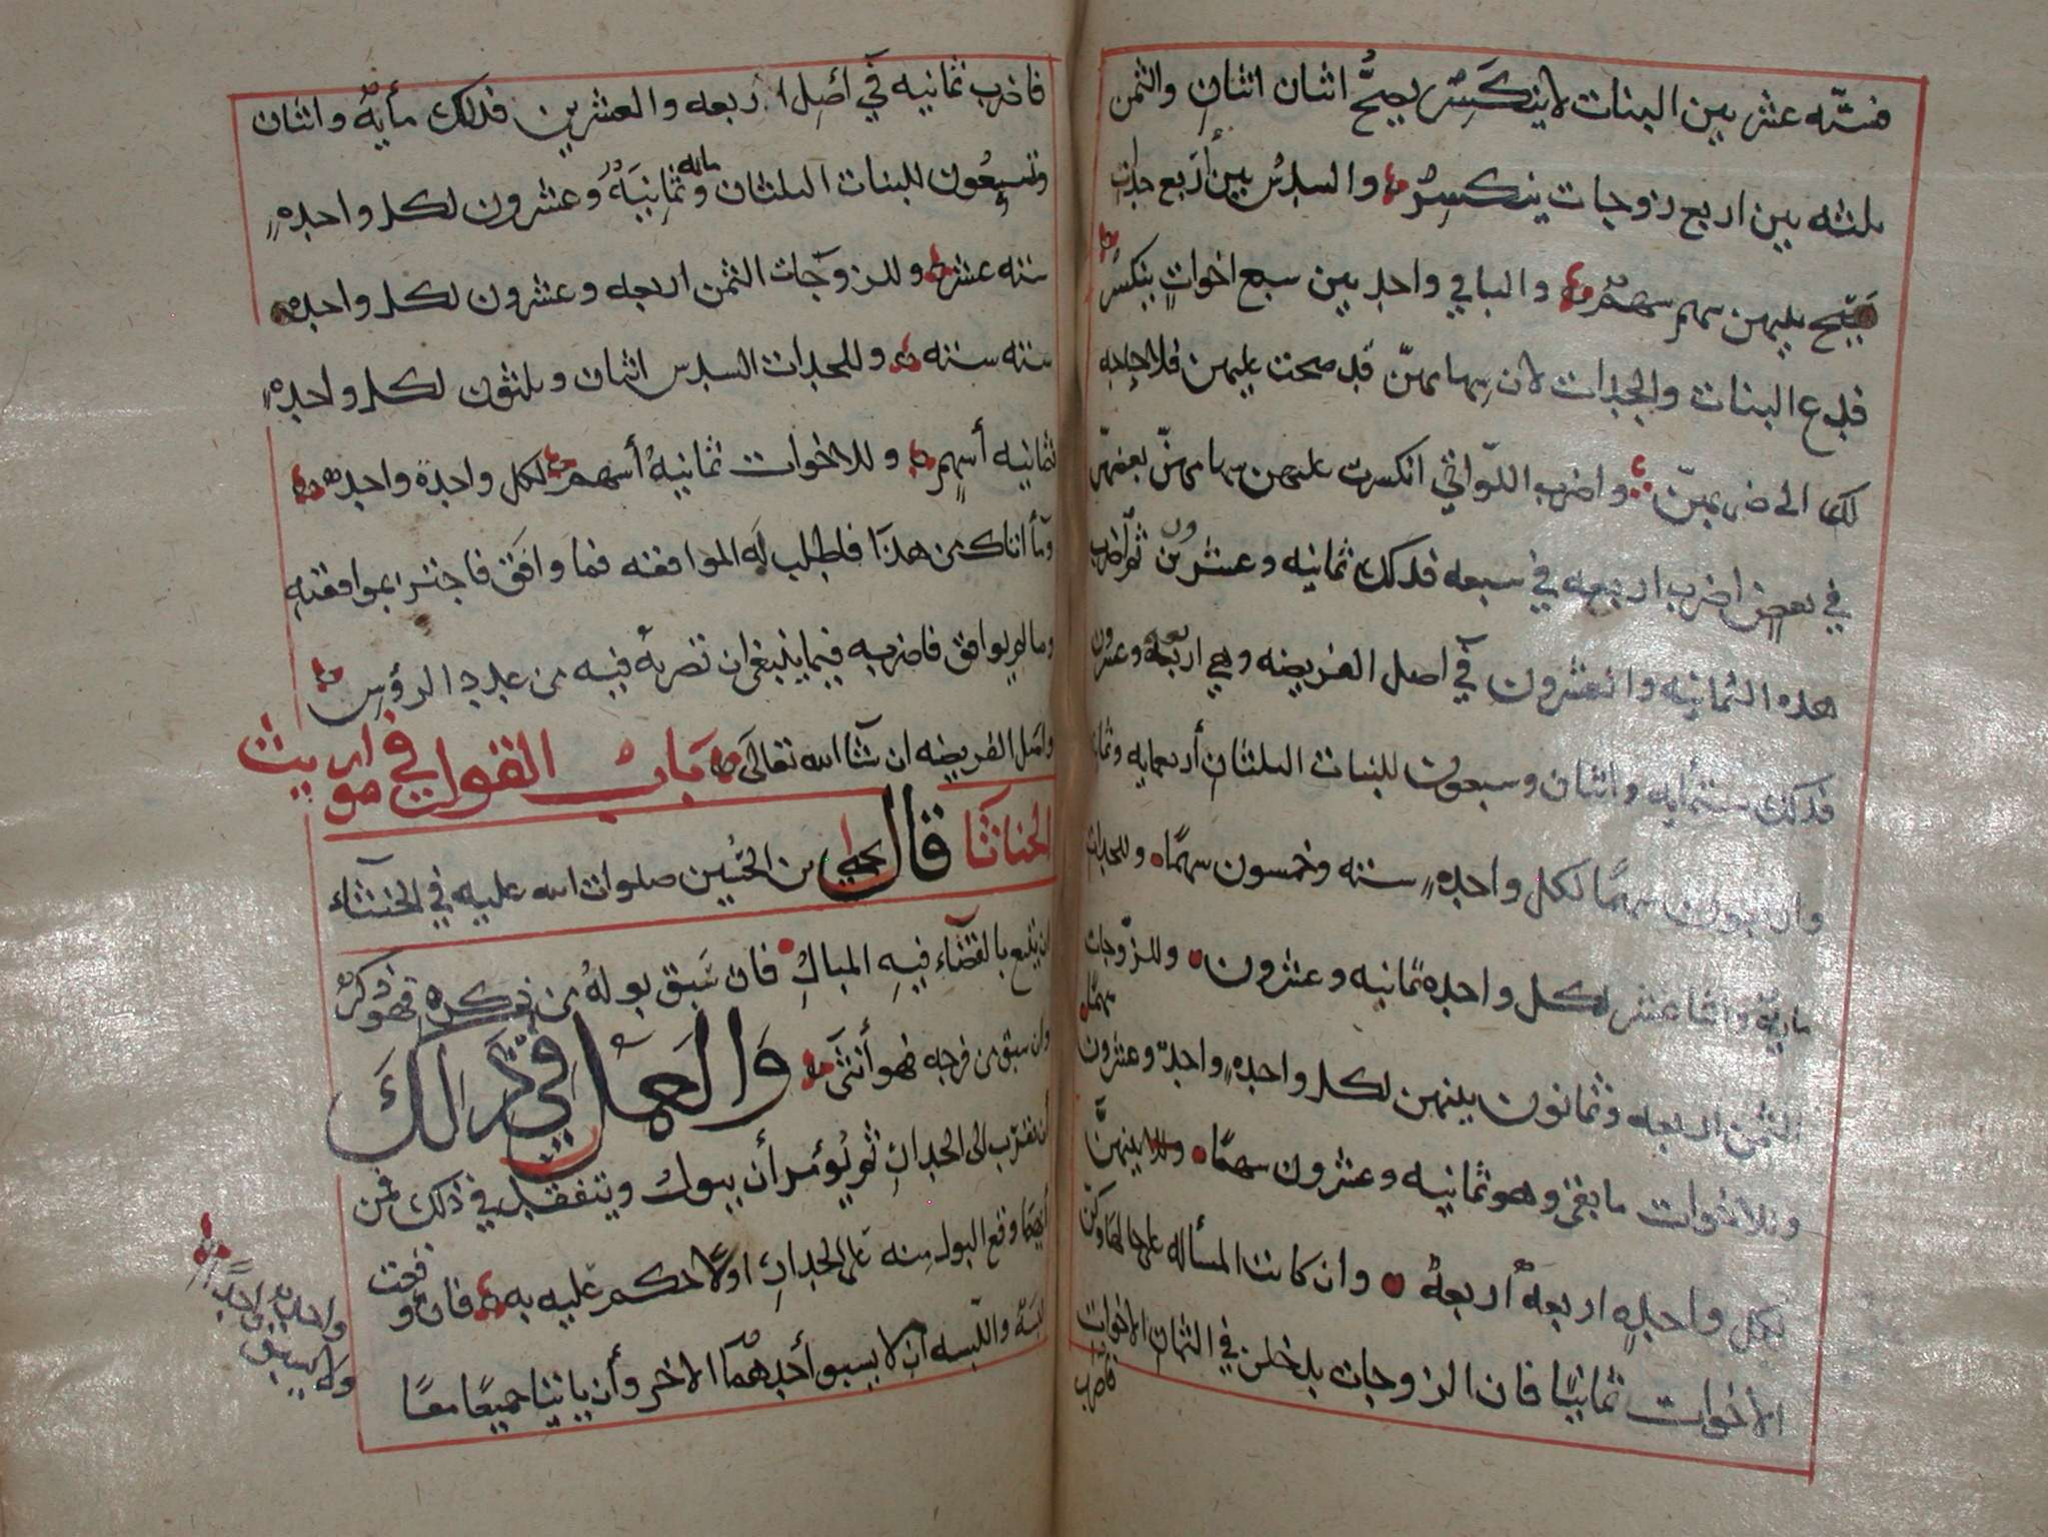 فستّه عشر بين البنات لا ينكَسِر يصحُّ اثنان اثنان والثمن
ثلثه بين اربع زوجات ينكسِرُ والسدسُ بين أربع جدات
يصح عليهن سهم سهمٌ والباقي واحد بين سبع اخواتٍ ينكسرُ
فدع البنات والجدات لان سهامهنّ قد صحت عليهن فلا حاجه
لك الى ضربهنّ واضرب اللّواتي انكسرت عليهن سهامهنّ بعضهنّ
في بعضٍ اضرب اربعه في سبعه فذلك ثمانيه وعشرون ثم اضرب
هذه الثمانيه والعشرون في اصل الفريضه وهي اربعة وعشرون
فذلك ستمأيه واثنان وسبعون للبنات الثلثان أربعمايه وثمانيه
واربعون سهمًا لكل واحدهٍ سته وخمسون سهمًا وللجدات
مايةٌ واثنا عشر لكل واحده ثمانيه وعشرون وللزّوجات
الثمن اربعه وثمانون بينهن لكل واحدهٍ واحدٌ وعشرون سهمًا
وللاخوات ما بقي وهو ثمانيه وعشرون سهمًا بينهنّ
لكل واحدهٍ اربعةٌ اربعةٌ وان كانت المسأله على حالها وكنّ
الاخوات ثمانيًا فان الزوجات يدخلن في الثمان الاخوات
فاضرب
فاضرب ثمانيه في أصل الاربعه والعشرين فذلك مأيةٌ واثنان
وتسعُون للبنات الثلثان مائه وثمانيَةٌ وعشرون لكل واحدهٍ
سته عشر وللزوجات الثمن اربعه وعشرون لكل واحده
سته سته وللجدات السدس اثنان وثلثون لكل واحدهٍ
ثمانيه أسهمٍ وللاخوات ثمانيةُ أسهمٍ لكل واحدة واحده
وما اتاك من هذا فاطلب له الموافقه فما وافق فاجتز بموافقتهِ
وما لم يوافق فاضربه فيما ينبغي ان تضربهُ فيه من عدد الرؤسِ
واصل الفريضه ان شآ الله تعالى بَابُ القول في مواريث
الخناثا قال يحيى بن الحسين صلوات الله عليه في الخنثاء
ان يتبع بالقضَاء فيهِ المبالِ فان سَبق بولهُ من ذكره فهو ذكرٌ
وان سبق من فرجه فهو أنثى وَالعمل في ذَالكَ
أن يقرّب الى الجدارِ ثم يُؤمر أن يبول ويتفقد في ذلك فمن
أيهما وقع البول منه على الجدارِ اولا حكم عليه به فان وقعت
لبسَةٌ واللّبسه ان لا يسبق أحدهمَا الاخر وأن ياتيا جميعًا معًا
ولا يسبق
واحدٌ واحدًا